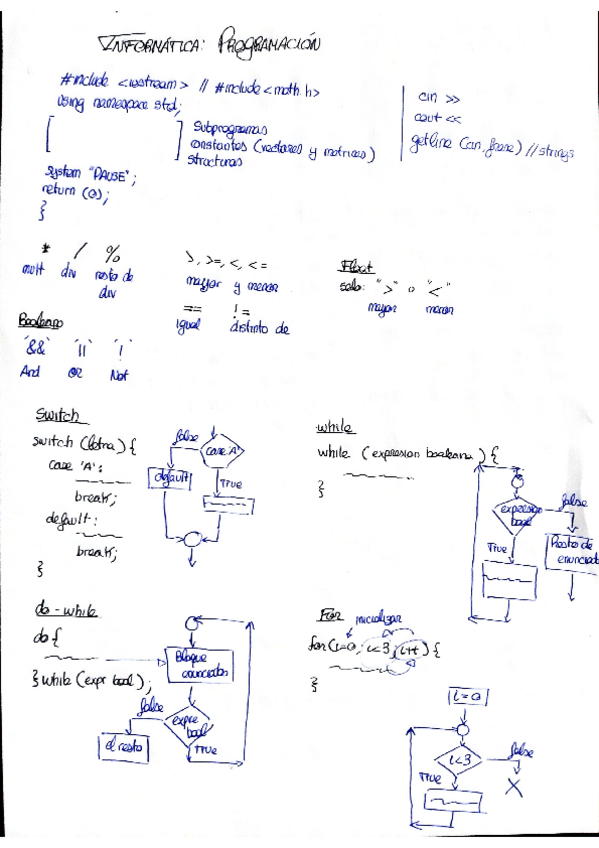 INFORMÁTICA: PROGRAMACIÓN
#include <iostream> // #include <math.h>
using namespace std;
[ ] Subprogramas
constantes (vectores y matrices)
structuras
system "PAUSE";
return (0);
}
cin >>
cout <<
getline (cin, frase) // strings
* / %
mult div resto de
div
>, >=, <, <=
mayor y menor
== !=
igual distinto de
Float
solo: ">" o "<"
mayor menor
Booleano
'&&' '||' '!'
And OR Not
Switch
switch (letra) {
case 'A':
break;
default:
break;
}
false
case 'A'
default
True
while
while (expresion booleana) {
}
expresion
bool
false
True
Resto de
enunciado
do - while
do {
} while (expr bool);
Bloque
enunciados
false
expre
bool
el resto
True
For
inicializar
for (i=0; i<3; i++) {
}
i = 0
i<3
false
True
X